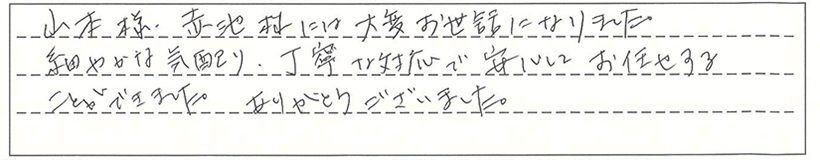 山本様、赤池様には大変お世話になりました。
細やかな気配り、丁寧な対応で安心してお任せする
ことができました。ありがとうございました。